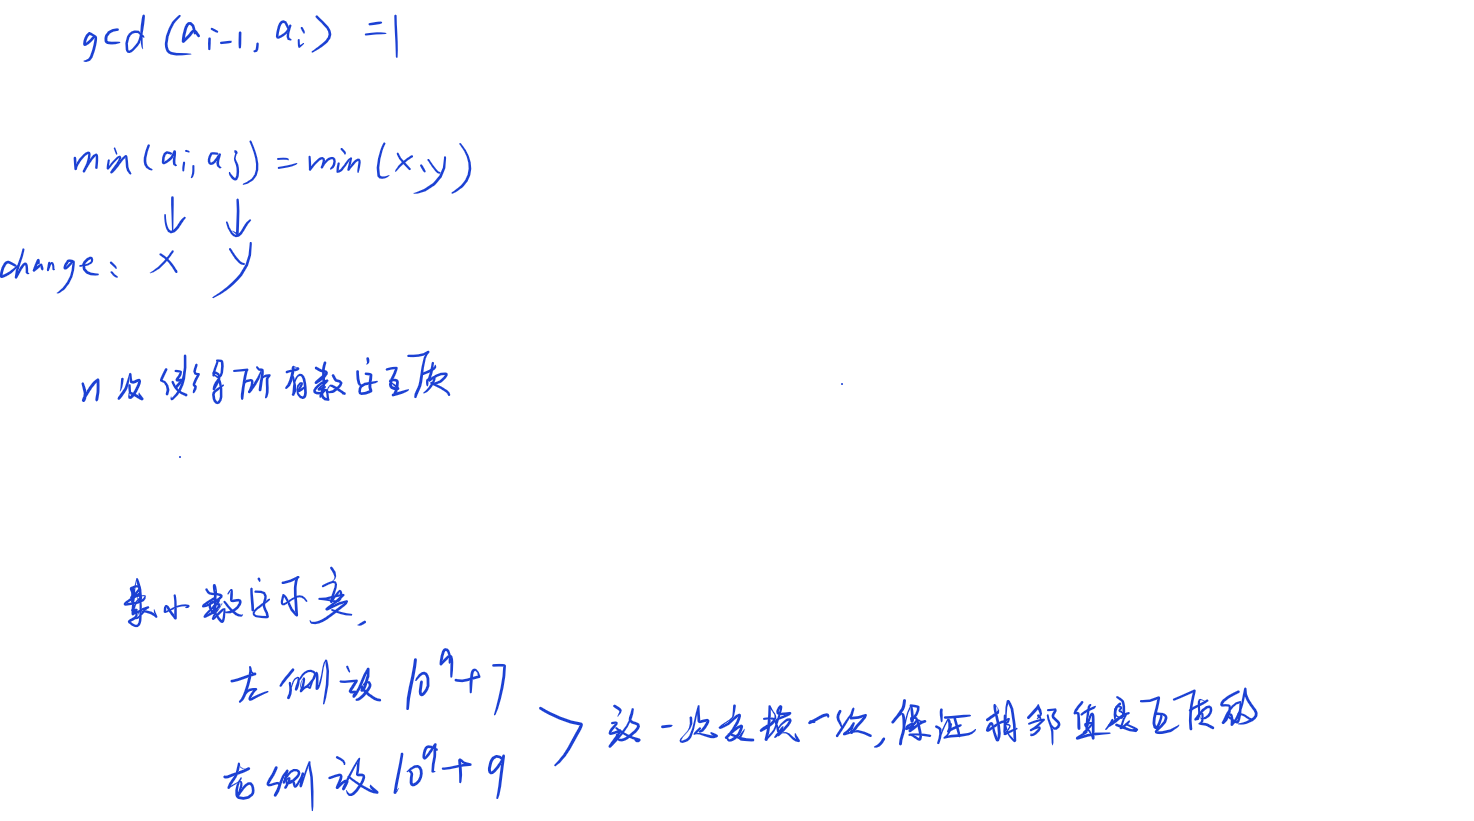 gcd (a i-1, a i) = 1
min(a i, a j) = min (x, y)
↓ ↓
change: x y
n 次使得所有数字互质
最小数字不变,
左侧设 10^9+7
右侧设 10^9+9
设一次交换一次,保证相邻值是互质的